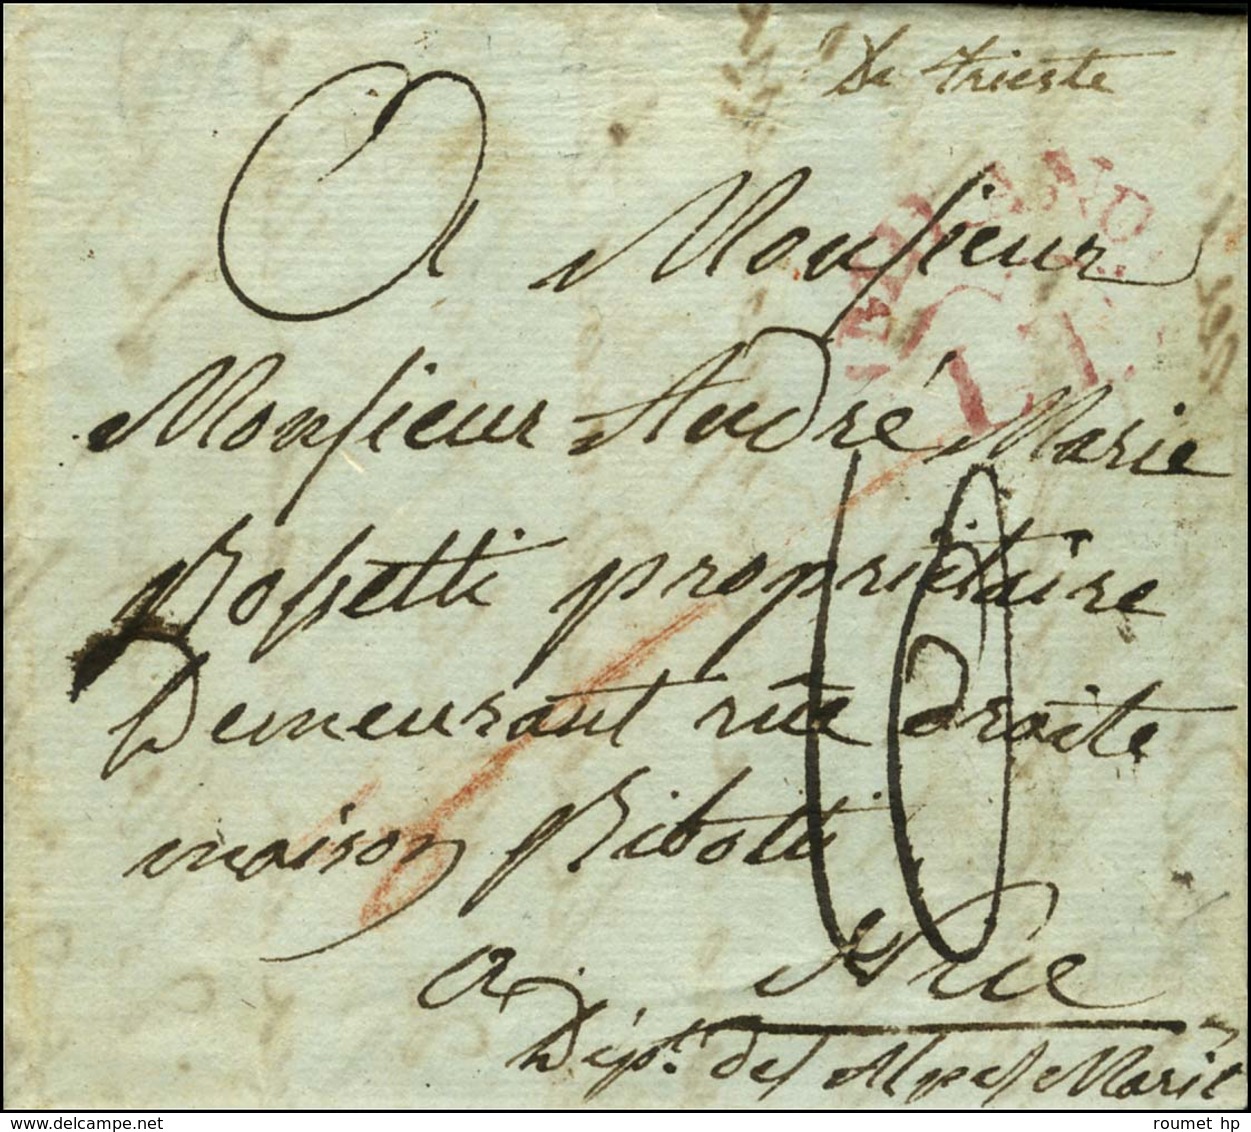 De Trieste
A Monsieur
Monsieur André Marie
Rossetti propriétaire
Demeurant rüe droite
maison Ribotti
a Nice
Dépt. des Alpes Marit
L I
delcampe.net
roumet hp